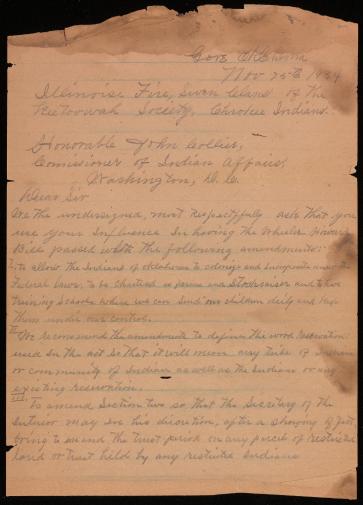 Gore Oklahoma
Nov 25th 1934
Illinoise Fire, Seven Clans of the
Keetoowah Society, Cherokee Indians.
Honorable John Collier,
Comissioner of Indian Affairs,
Washington, D.C.
Dear Sir
We the undersigned, most respectfully ask that you
use your Influence In having the Wheeler Howard
Bill passed with the following amendments:
I, to allow the Indians of oklahoma to colonize and Incorporate under the
Federal laws, to be Chartered as farmers and Stockraisers and to have
training schools where we can send our children daily and keep
them under our control.
II We recommend the amendments to define the word reservation
used in the act so that it will mean any tribe of Indians
or community of Indians as well as the Indians on any
existing reservation.
III To amend Section two so that the Secretary of the
Interior may In his discretion, after a showing of just,
bring to extend the trust period on any parcel of restricted
land or trust held by any restricted Indians